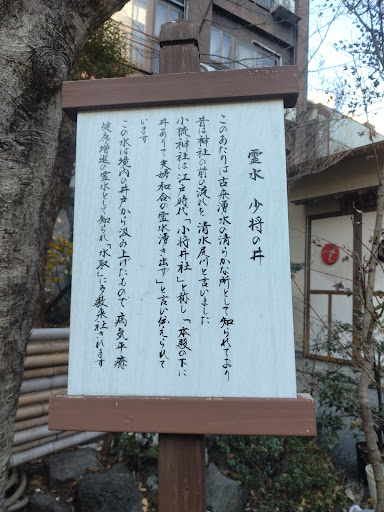 霊水　少将の井
このあたりは古来湧水の清らかな所として知られており
昔は神社の前の流れを、清水尻川と言いました
小梳神社は江戸時代「小将井社」と称し「本殿の下に
井ありて夫婦和合の霊水湧き出ず」と言い伝えられて
います
この水は境内の井戸から汲み上げたもので、病気平癒
健康増進の霊水として知られ「水取」に多数来社されます